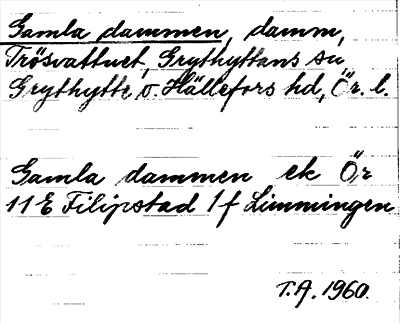 Gamla dammen, damm,
Trösvattnet, Grythyttans sn
Grythytte o. Hällefors hd, Ör. l.
Gamla dammen ek Ör
11E Filipstad 1f Limmingen
T.A. 1960.